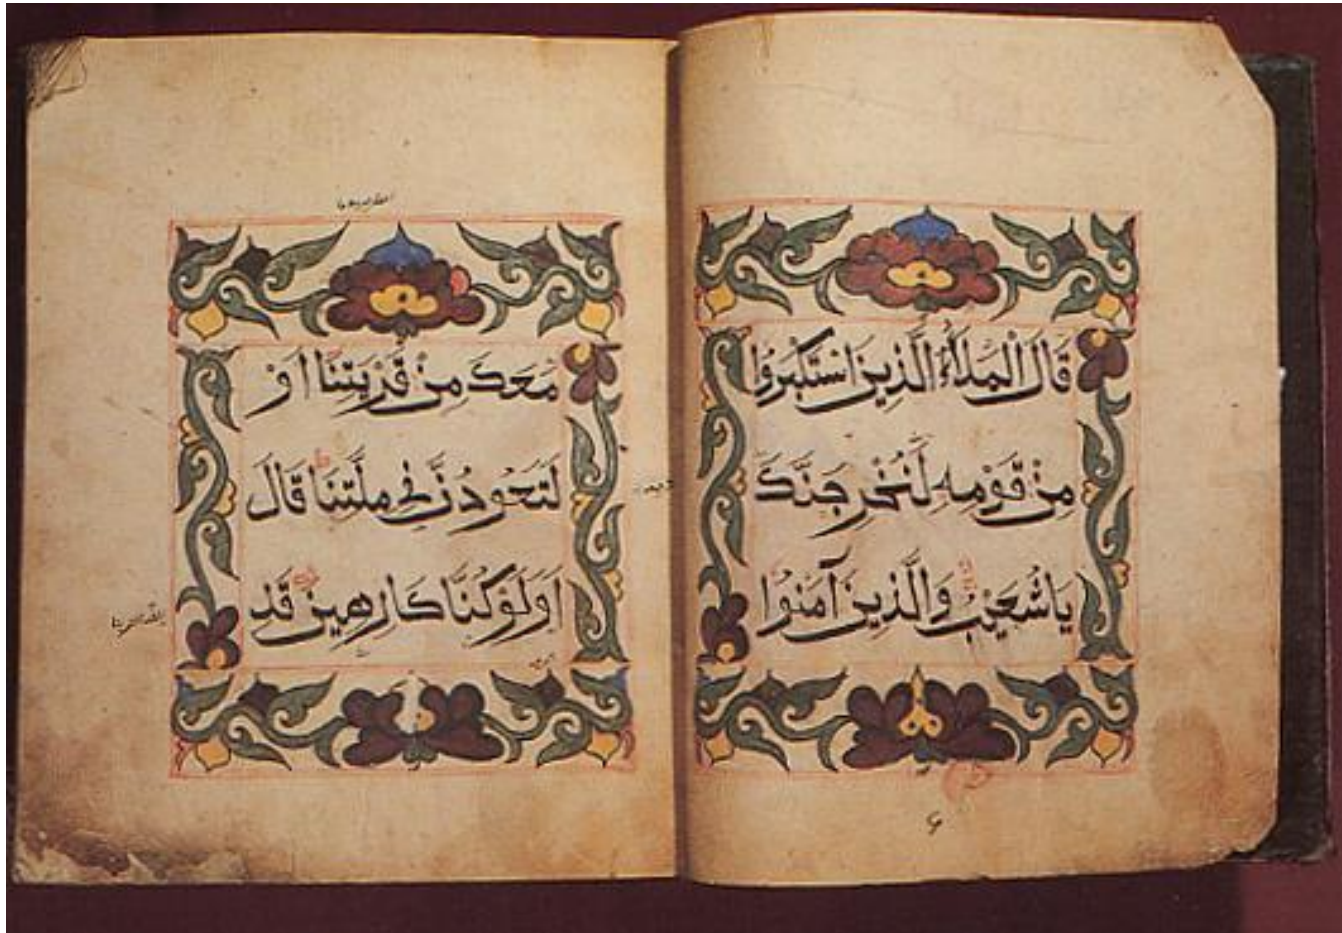 قَالَ الْمَلَاُ الَّذِينَ اسْتَكْبَرُوا
مِنْ قَوْمِهِ لَنُخْرِجَنَّكَ
يَاشُعَيْبُ وَالَّذِينَ آمَنُوا
مَعَكَ مِنْ قَرْيَتِنَا اَوْ
لَتَعُودُنَّ فِي مِلَّتِنَا قَالَ
اَوَلَوْ كُنَّا كَارِهِينَ قَدِ